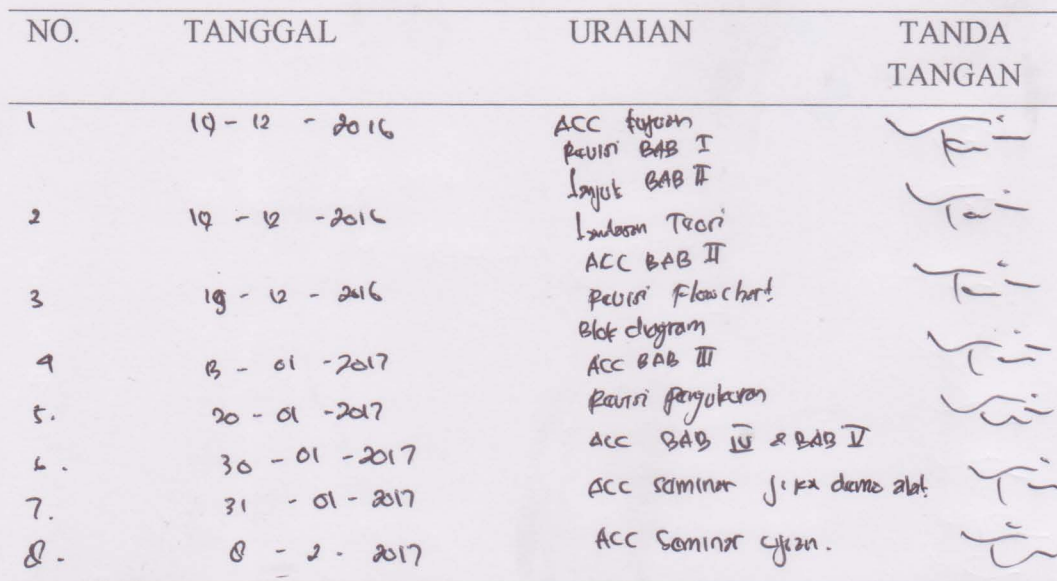 NO. TANGGAL URAIAN TANDA
TANGAN
1 10 - 12 - 2016 ACC
Revisi BAB I
Lanjut BAB II
2 - 12 - 2016 Landasan Teori
ACC BAB II
3 19 - 12 - 2016 Revisi Flowchart
Blok diagram
4 13 - 01 - 2017 ACC BAB III
5. 20 - 01 - 2017 Revisi Pengukuran
ACC BAB IV & BAB V
6. 30 - 01 - 2017
7. 31 - 01 - 2017 ACC seminar jika demo alat
8. 8 - 2 - 2017 ACC Seminar ujian.